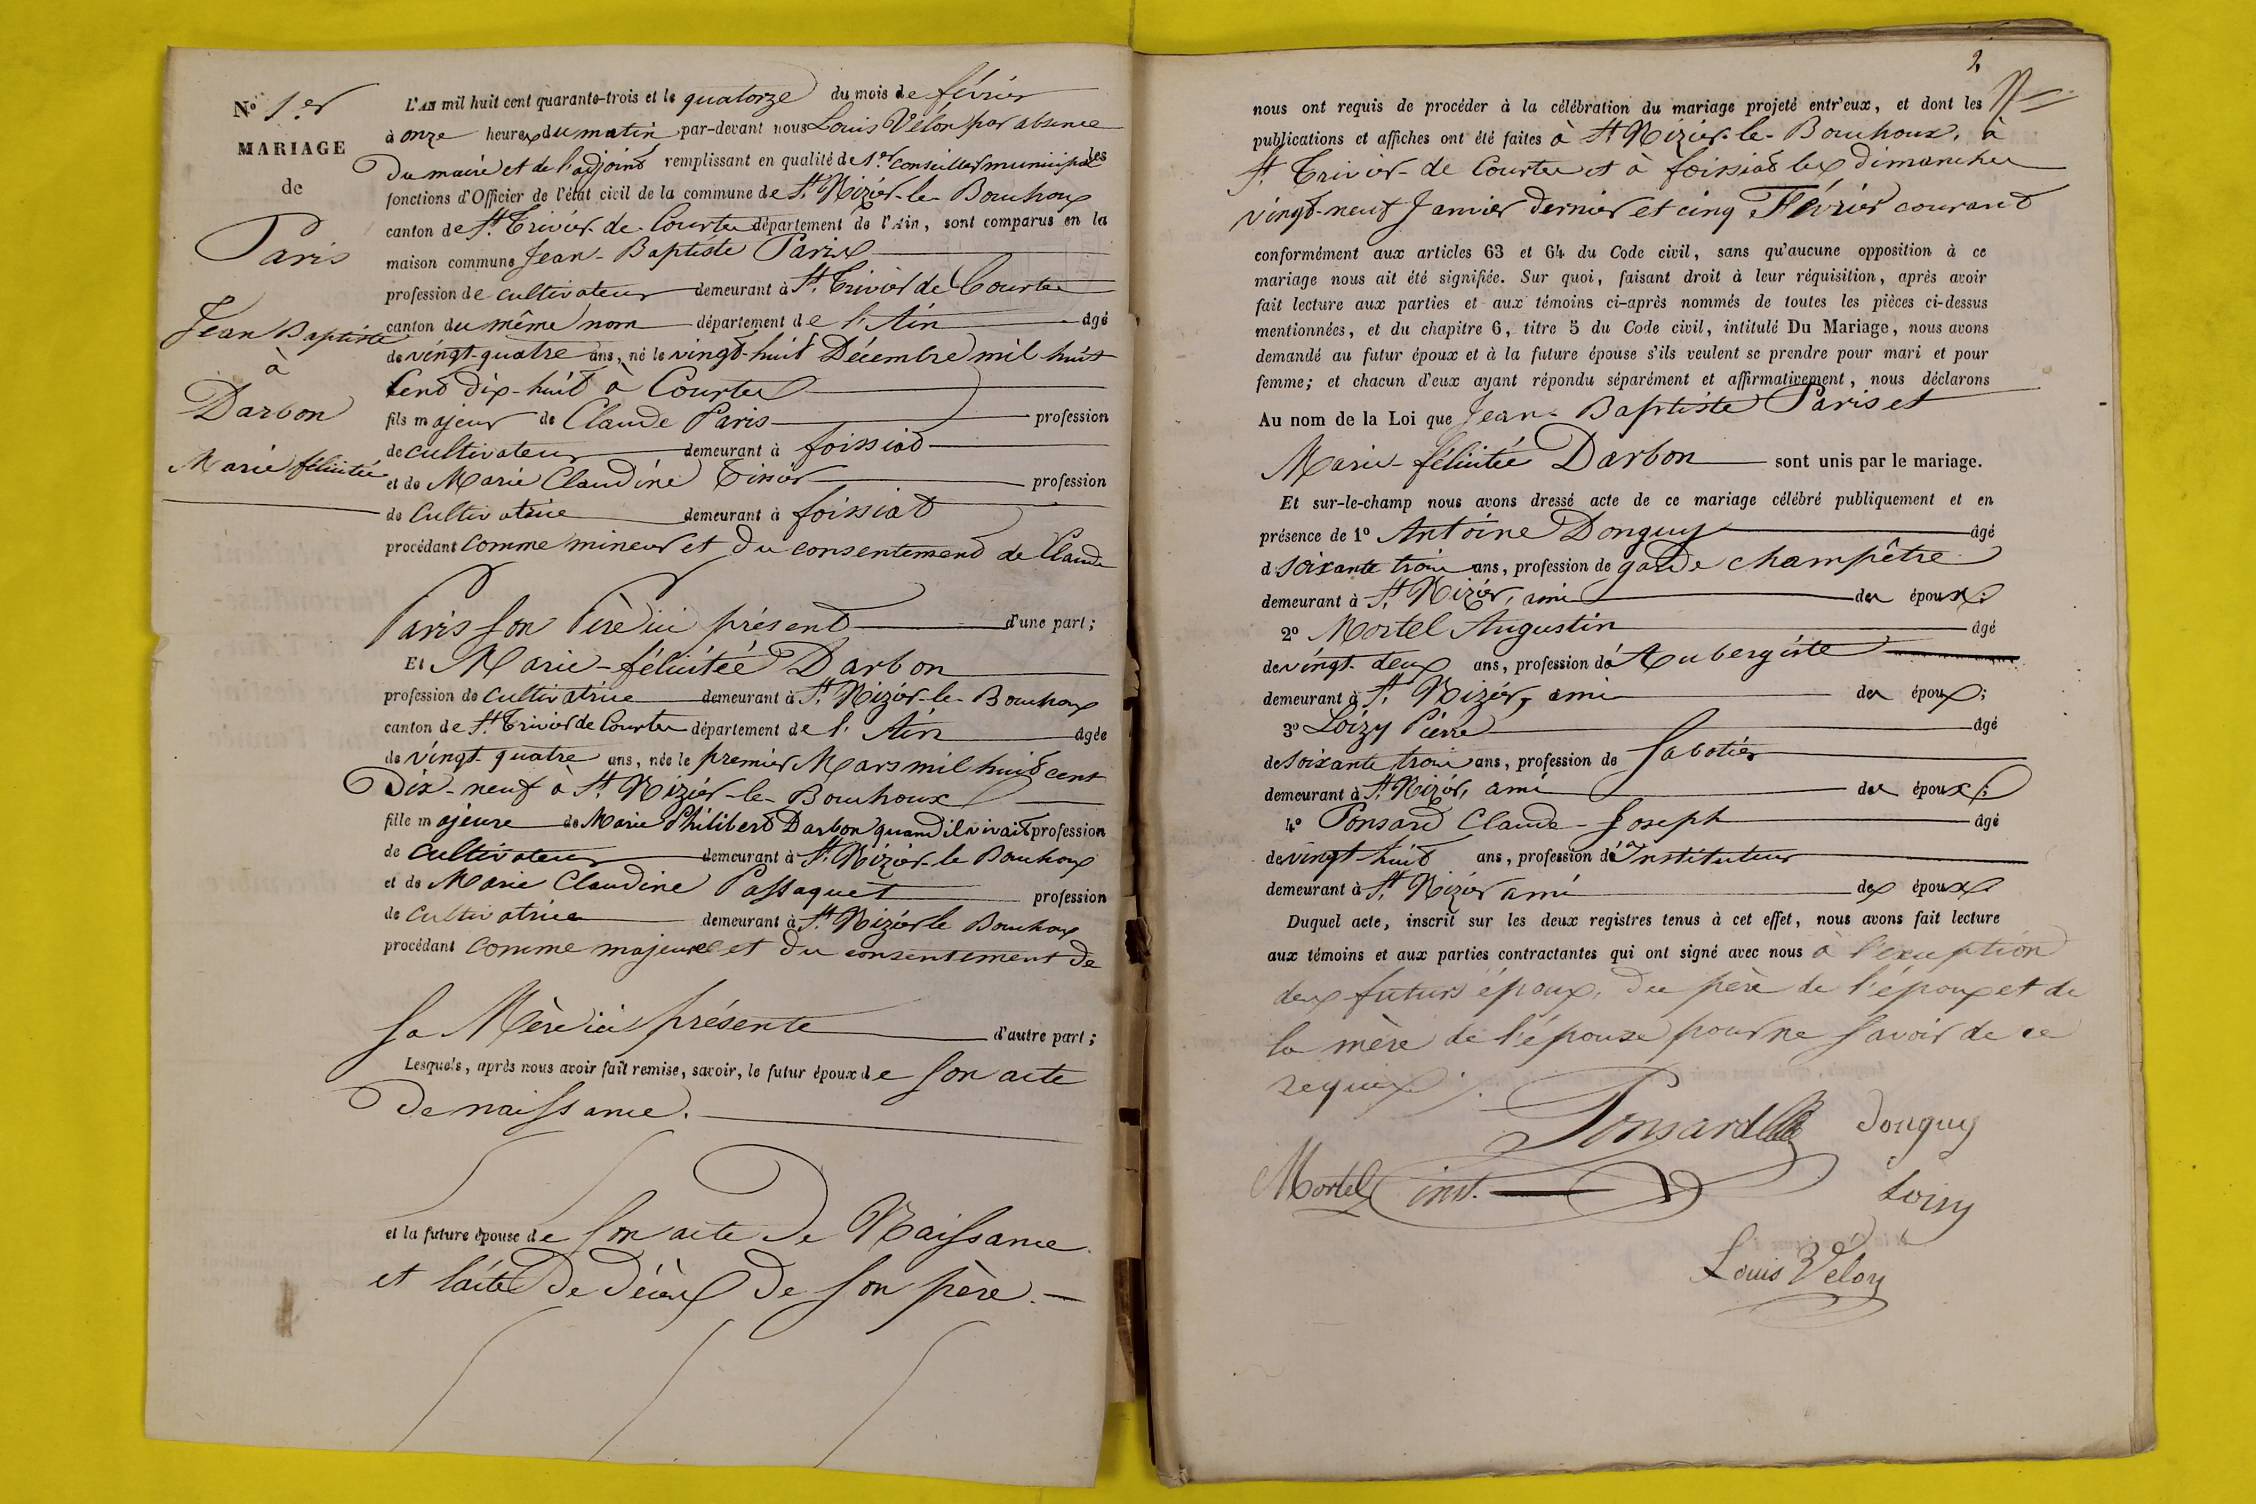 N° 1.er
MARIAGE
de
Paris
Jean Baptiste
à
Darbon
Marie félicitée
L'AN mil huit cent quarante-trois et le quatorze du mois de février
à onze heures du matin par-devant nous Louis Vélon par absence
Du maire et de l'adjoint remplissant en qualité de 1.er conseiller municipal les
fonctions d'Officier de l'état civil de la commune de St. Nizier-le-Bouchoux
canton de St. Trivier-de-Courtes département de l'Ain, sont comparus en la
maison commune Jean-Baptiste Paris
profession de cultivateur demeurant à St. Trivier de Courtes
canton du même nom département de l'Ain âgé
de vingt-quatre ans, né le vingt-huit Décembre mil huit
Cent dix-huit à Courtes
fils majeur de Claude Paris profession
de cultivateur demeurant à foissiat
et de Marie Claudine Tissier profession
de Cultivatrice demeurant à foissiat
procédant comme mineur et du consentement de Claude
Paris son Père ici présent d'une part;
Et Marie-félicitée Darbon
profession de cultivatrice demeurant à St. Nizier-le-Bouchoux
canton de St. Trivier de Courtes département de l'Ain âgée
de vingt-quatre ans, née le premier Mars mil huit cent
Dix-neuf à St. Nizier-le-Bouchoux
fille majeure de Marie Philibert Darbon quand il vivait profession
de Cultivateur demeurant à St. Nizier-le Bouchoux
et de Marie Claudine Passaquet profession
de Cultivatrice demeurant à St. Nizier le Bouchoux
procédant comme majeure et du consentement de
sa Mère ici présente d'autre part;
Lesquels, après nous avoir fait remise, savoir, le futur époux de son acte
De naissance.
et la future épouse de son acte de Naissance
et l'acte De décès De son père.
2
nous ont requis de procéder à la célébration du mariage projeté entr'eux, et dont les
publications et affiches ont été faites à St Nizier-le-Bouchoux, à
St. Trivier-de Courtes et à foissiat les dimanches
vingt-neuf Janvier dernier et cinq Février courant
conformément aux articles 63 et 64 du Code civil, sans qu'aucune opposition à ce
mariage nous ait été signifiée. Sur quoi, faisant droit à leur réquisition, après avoir
fait lecture aux parties et aux témoins ci-après nommés de toutes les pièces ci-dessus
mentionnées, et du chapitre 6, titre 5 du Code civil, intitulé Du Mariage, nous avons
demandé au futur époux et à la future épouse s'ils veulent se prendre pour mari et pour
femme; et chacun d'eux ayant répondu séparément et affirmativement, nous déclarons
Au nom de la Loi que Jean-Baptiste Paris et
Marie-félicitée Darbon sont unis par le mariage.
Et sur-le-champ nous avons dressé acte de ce mariage célébré publiquement et en
présence de 1° Antoine Donguy âgé
de soixante trois ans, profession de garde champêtre
demeurant à St. Nizier, ami des époux;
2° Mortel Augustin âgé
de vingt-deux ans, profession d'Aubergiste
demeurant à St. Nizier, ami des époux;
3° Loizy Pierre âgé
de soixante trois ans, profession de Sabotier
demeurant à St. Nizier, ami des époux;
4° Ponsard Claude-Joseph âgé
de vingt huit ans, profession d'Instituteur
demeurant à St. Nizier ami des époux
Duquel acte, inscrit sur les deux registres tenus à cet effet, nous avons fait lecture
aux témoins et aux parties contractantes qui ont signé avec nous à l'exception
deux futurs époux, du père de l'époux et de
la mère de l'épouse pour ne savoir de ce
requis.
Ponsard Donguy
Mortel inst. Loisy
Louis Velon